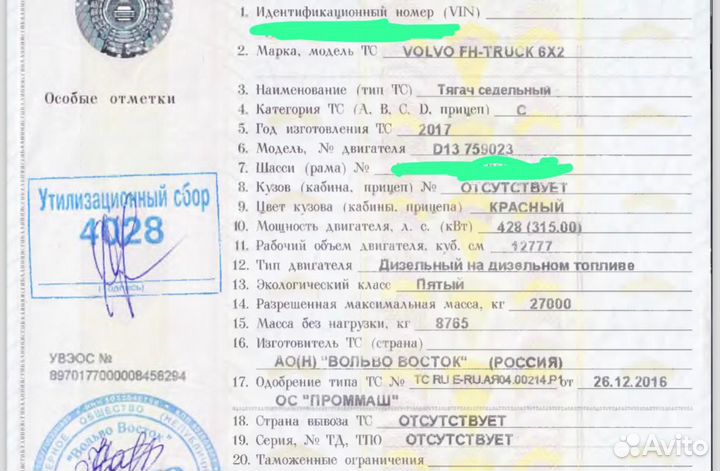 1. Идентификационный номер (VIN)
2. Марка, модель ТС VOLVO FH-TRUCK 6X2
Особые отметки
3. Наименование (тип ТС) Тягач седельный
4. Категория ТС (А, В, С, D, прицеп) С
5. Год изготовления ТС 2017
6. Модель, № двигателя D13 759023
7. Шасси (рама) №
8. Кузов (кабина, прицеп) № ОТСУТСТВУЕТ
Утилизационный сбор
4028
(подпись)
9. Цвет кузова (кабины, прицепа) КРАСНЫЙ
10. Мощность двигателя, л. с. (кВт) 428 (315.00)
11. Рабочий объем двигателя, куб. см 12777
12. Тип двигателя Дизельный на дизельном топливе
13. Экологический класс Пятый
14. Разрешенная максимальная масса, кг 27000
15. Масса без нагрузки, кг 8765
16. Изготовитель ТС (страна)
АО(Н) "ВОЛЬВО ВОСТОК" (РОССИЯ)
УВЭОС №
8970177000008456294
17. Одобрение типа ТС № ТС RU Е-RU.АЯ04.00214.Р1 от 26.12.2016
ОС "ПРОММАШ"
18. Страна вывоза ТС ОТСУТСТВУЕТ
19. Серия, № ТД, ТПО ОТСУТСТВУЕТ
20. Таможенные ограничения
"Вольво Восток"
Avito